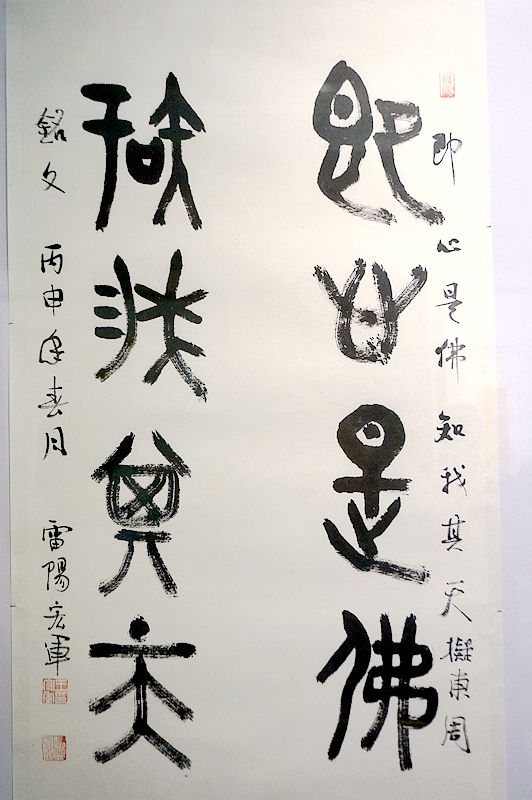 即心是佛
知我其天
即心是佛知我其天擬東周
銘文 丙申年春月 雷陽宏軍